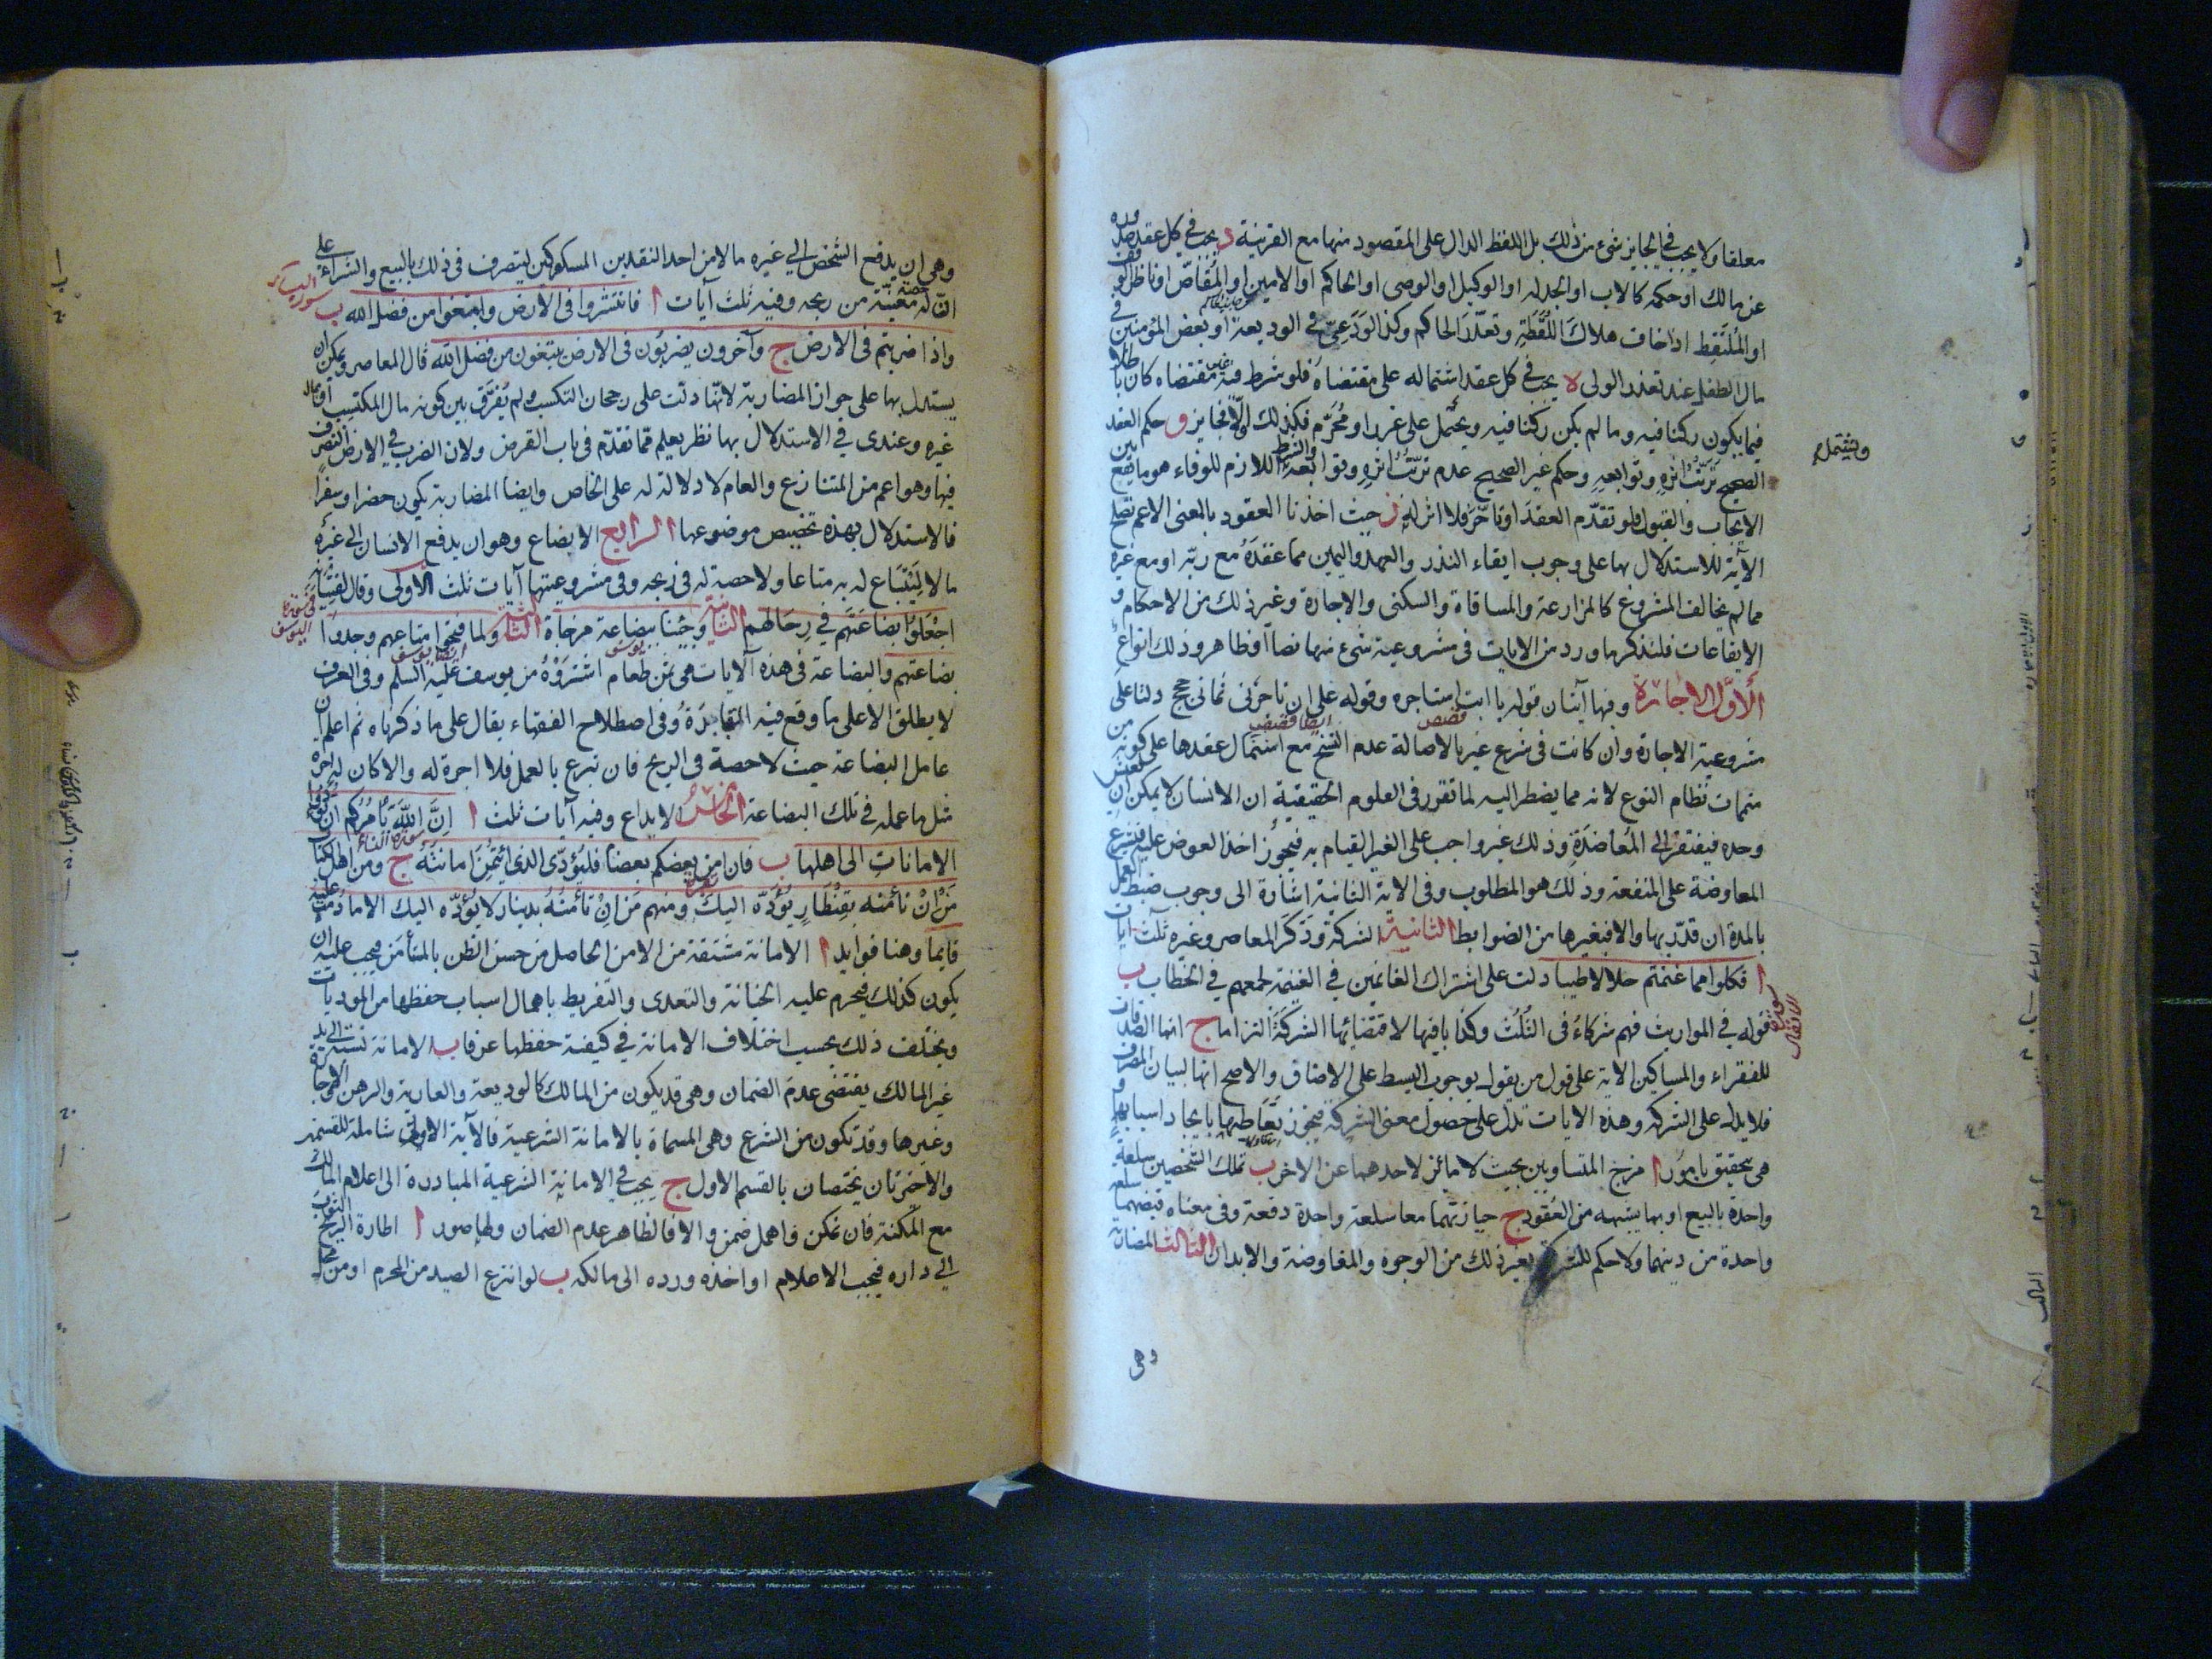 معلقا ولا يجب في الجايز شيء من ذلك بل اللفظ الدال على المقصود منها مع القرينة د يجب في كل عقد صدوره
عن مالك او حكمه كالاب او الجد له او الوكيل او الوصى او الحاكم او الامين او المُقاصّ او ناظر الوقف
او المُلتَقِط اذا خاف هلاكَ اللُقَطَةِ وتعذّرَ الحاكم وكذا الوَدَعِىّ في الوديعة او بعض المؤمنين في
مال الطفل عند تعذر الولى ه يجب في كل عقد اشتماله على مقتضاه فلو شرط فيه غير مقتضاه كان باطلا
فيما يكون ركنا فيه وما لم يكن ركنا فيه ويشتمل على غرر او مُحَرّم فكذلك والّا فجايز و حكم العقد
الصحيح تَرَتُّبُ اثرِه وتوابعهِ وحكم غير الصحيح عدم ترتّبُ اثرِه وتوابعه والشرط اللازم للوفاء هو ما يقع بين
الايجاب والقبول فلو تقدّم العقدَ او تاخّرَ فلا اثر له ز حيث اخذنا العقود بالمعنى الاعم تصلح
الآية للاستدلال بها على وجوب ايفاء النذر والعهد واليمين مما عقدَهُ مع ربّه او مع غيره
مما لم يخالف المشروع كالمزارعة والمساقاة والسكنى والاجارة وغير ذلك من الاحكام و
الايقاعات فلنذكر ما ورد من الايات في مشروعية شيء منها نصا او ظاهر وذلك انواع
الاوّل الاجارة وفيها آيتان قوله يا ابت استاجره وقوله على ان تاجرنى ثمانى حجج دلتا على
قصص ايضا قصص
مشروعية الاجارة وان كانت في شرع غيرنا لاصالة عدم النسخ مع اشتمال عقدها على كونه من
متمات نظام النوع لانه مما يضطر اليه لما تقرر في العلوم الحقيقية ان الانسان لا يمكن ان يعيش
وحده فيفتقر الى المُعاضَدَةِ وذلك غير واجب على الغير القيام به فيجوز اخذ العوض عليه فشرع
المعاوضة على المنفعة وذلك هو المطلوب وفي الاية الثانية اشارة الى وجوب ضبط العمل
بالمدة ان قدّر بها والا فبغيرها من الضوابط الثانية الشركة وذكَرَ المعاصر وغيره ثلث آيات
ا فكلوا مما غنمتم حلالا طيبا دلت على اشتراك الغانمين في الغنيمة لجمعهم في الخطاب ب
قوله في المواريث فهم شركاءُ فى الثُلُث وكذا باقيها لاقتضائها الشركةَ التزاما ج انما الصدقات
سورة الانفال
للفقراء والمساكين الاية على قول من يقول بوجوب البسط على الاصناف والاصح انها لبيان المصرف
فلا يدل على الشركة وهذه الايات تدل على حصول معنى الشركة فيجوز تعاطيها بايجاد اسبابها و
هى تتحقق بامور ا مزج المتساويين بحيث لا مائز لاحدهما عن الاخر ب تملك الشخصين سلعةً
واحدة بالبيع او بما يشبهه من العُقود ج حيازتهما معا سلعة واحدة دفعة وفي معناه قبضهما سلعه
واحدة من دينهما ولا حكم للشركة بغير ذلك من الوجوه والمفاوضة والابدان الثالث المضاربة
وهى
ويشتمل
وهى ان يدفع الشخص الى غيره مالا من احد النقدين المسكوكين ليتصرف في ذلك بالبيع والشراء على
انّ له حصة معيّنة من ربحه وفيه ثلث آيات ا فانتشروا فى الارض وابتغوا من فضل الله ب
واذا ضربتم فى الارض ج وآخرون يضربُون فى الارض يبتغون من فضل الله قال المعاصر ويمكن ان
يستدل بها على جواز المضاربة لانّها دلت على رجحان التكسب ولم يُفَرَّق بين كونه مال المكتسب او مال
غيره وعندى في الاستدلال بها نظر يعلم ممّا تقدّم فى باب القرض ولان الضرب في الارض التصرف
فيها وهو اعم من المتنازع والعام لا دلالة له على الخاص وايضا المضاربة يكون حضرا وسفرا
فالاستدلال بهذه تخصيص موضوعها الرابع الابضاع وهو ان يدفع الانسان الى غيره
مالا لِيَبْتَاع له به متاعا ولا حصة له في ربحه وفى مشروعيتها آيات ثلث الاولى وقال لفتيانه
اجْعَلُوا بِضَاعَتَهُم فِي رِحَالِهم الثانية وَجِئنا ببضاعة مزجاة الثالثة ولما فتحوا متاعهم وجدوا
يوسف ايضا يوسف
بضاعتهم والبضاعة في هذه الآيات هى ثمن طعام اشترَوْهُ من يوسف عليه السلم وفى العرف
لا يطلق الا على ما وقع فيه المقايدَة وفى اصطلاح الفقهاء يقال على ما ذكرناه ثم اعلم ان
عامل البضاعة حيث لا حصة فى الربح فان تبرع بالعمل فلا اجرة له والا كان له اجرة
مثل ما عمله في تلك البضاعة الخامس الايداع وفيه آيات ثلث ا اِنَّ اللّهَ يَأمُرُكُم ان تؤدوا
سورة النساء
الامانات الى اهلها ب فان امن بعضكم بعضا فليُؤدّى الذى اُئتُمِنَ امانتَه ج ومن اهل الكتاب
بقرة
مَنْ اِنْ تأمنه بِقِنْطَارٍ يُؤَدّه اليك ومنهم مَن اِنْ تأمَنْهُ بدينار لا يُؤَدّه اليك الا ما دُمتَ عليه
قايما وهنا فوايد ا الامانة مشتقة من الامن الحاصل من حسن الظن بالمتأمَن فيجب عليه ان
يكون كذلك فيحرم عليه الخيانة والتعدى والتفريط باهمال اسباب حفظها من الموذيات
ويختلف ذلك بحسب اختلاف الامانة في كيفية حفظها عرفا ب الامانة نسبة الى يد
غير المالك يقتضى عدم الضمان وهى قد يكون من المالك كالوديعة والعارية والرهن والاجارة
وغيرها وقد تكون من الشرع وهى المسماة بالامانة الشرعية فالآية الاولى شاملة للقسمين
والاخيرتان يختصان بالقسم الاول ج يجب في الامانة الشرعية المبادرة الى اعلام المالك
مع المُكنة فان تمكن واهمل ضمن والا فالظاهر عدم الضمان ولها صور ا اطارة الريح الثوبَ
الى داره فيجب الاعلام او اخذه ورده الى مالكه ب لو انتزع الصيد من المحرم او من محل